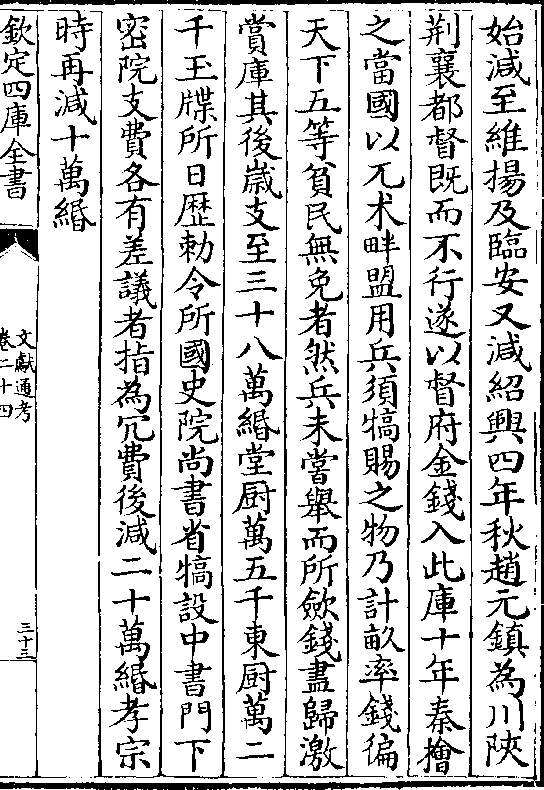 始減至維揚及臨安又減紹興四年秋趙元鎮為川陜
荆襄都督既而不行遂以督府金錢入此庫十年秦檜
之當國以兀术畔盟用兵須犒賜之物乃計畝率錢徧
天下五等貧民無免者然兵未嘗舉而所斂錢盡歸激
賞庫其後嵗支至三十八萬緡堂厨萬五千東厨萬二
千玉牒所日歴勅令所國史院尚書省犒設中書門下
密院支費各有差議者指為冗費後減二十萬緡孝宗
時再減十萬緡
欽定四庫全書
文獻通考
卷二十四
三十三